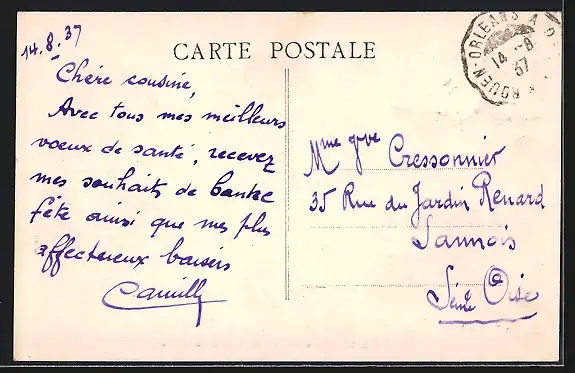 14.8.37
CARTE POSTALE
ORLEANS A ROUEN
14-8
37
Chère cousine,
Avec tous mes meilleurs
voeux de santé, recevez
mes souhaits de bonne
fête ainsi que mes plus
affectueux baisers
Camille
Mme Vve Cressonnier
35 Rue du Jardin Renard
Sannois
Seine Oise